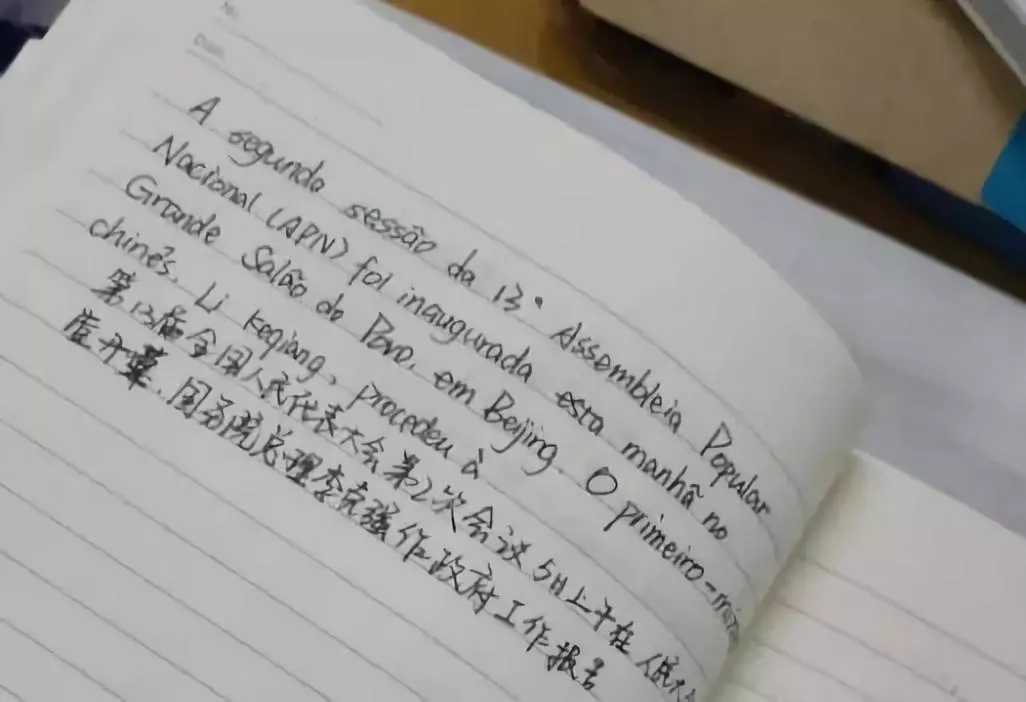 No.
Date.
A segunda sessão da 13ª Assembleia Popular
Nacional (APN) foi inaugurada esta manhã no
Grande Salão do Povo, em Beijing. O primeiro-
chinês, Li Keqiang, procedeu à
第13届全国人民代表大会第2次会议5日上午在
堂开幕.国务院总理李克强作政府工作报告